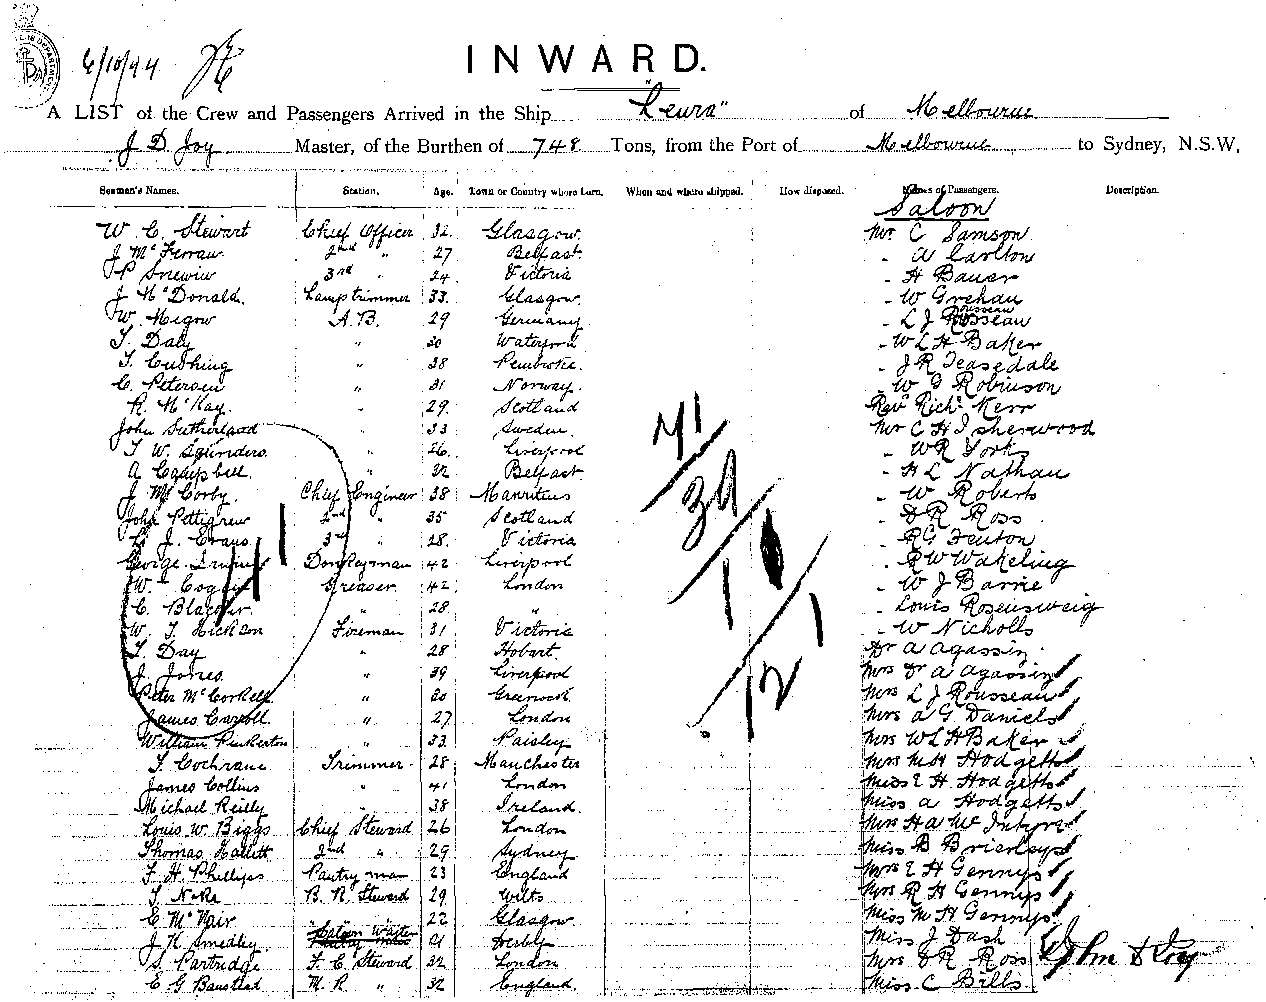 6/10/94
INWARD.
A LIST of the Crew and Passengers Arrived in the Ship "Leura" of Melbourne
J D Joy Master, of the Burthen of 748 Tons, from the Port of Melbourne to Sydney, N.S.W,
Seamen's Names. Station. Age. Town or Country where born. When and where shipped. How disposed. Names of Passengers. Description.
Saloon
W. C. Stewart Chief Officer 32 Glasgow Mr C Samson
J McFerran 2nd " 27 Belfast - A Carlton
P 3rd " 24 Victoria - H Bauer
J McDonald. Lamptrimmer 33. Glasgow - W Grehan
W. Migow A.B. 29 Germany - L J Rousseau
T. Daly " 30 Waterford - W L H Baker
T. Cushing " 38 Pembroke - J R Teasedale
C. Petersen " 31 Norway. - W G Robinson
R. McKay. " 29. Scotland Revd Richd Kerr
John Sutherland " 33 Sweden. Mr C H Isherwood
T. W. Saunders " 26 Liverpool - W R York
A Campbell " 32 Belfast - H L Nathan
J. McCorby. Chief Engineer 38 Mauritius - W Roberts
John Pettigrew 2nd " 35 Scotland - D R Ross
J. Evans 3rd " 28. Victoria - R G Fenton
George Donkeyman 42 Liverpool - R W Wakeling
W. Greaser 42 London - W J Barrie
C. " 28 " - Louis Rosensweig
W. T. Hickson Fireman 31 Victoria - W Nicholls
T. Day " 28 Hobart. Dr A Agassin
J. Jones. " 39 Liverpool Mrs Dr A Agassin
Peter McCorkell " 30 Greenock Mrs L J Rousseau
James Carroll. " 27 London Mrs A G Daniels
William Pinkerton " 33. Paisley Mrs W L H Baker
T. Cochrane Trimmer 28 Manchester Mrs M H Hodgetts
James Collins " 41 London Miss E H Hodgetts
Michael Reilly " 38 Ireland. Miss A Hodgetts
Louis W. Biggs Chief Steward 26 London Mrs H A McIntyre
Thomas Hallett 2nd " 29 Sydney Miss B Brierleys
F. H. Phillips Pantryman 23 England Mrs E H Gennys
T. B. R. Steward 29 Wilts Mrs R H Gennys
C McNair " 22 Glasgow Miss M H Gennys
J. H. Smedley. Saloon Waiter 21 Derby Miss J Dash
S. Partridge F. C. Steward 32 London Mrs D R Ross
C G Banstead M. R. " 32 England. Miss C Bills
41
39
1
12 1
11
John D Joy